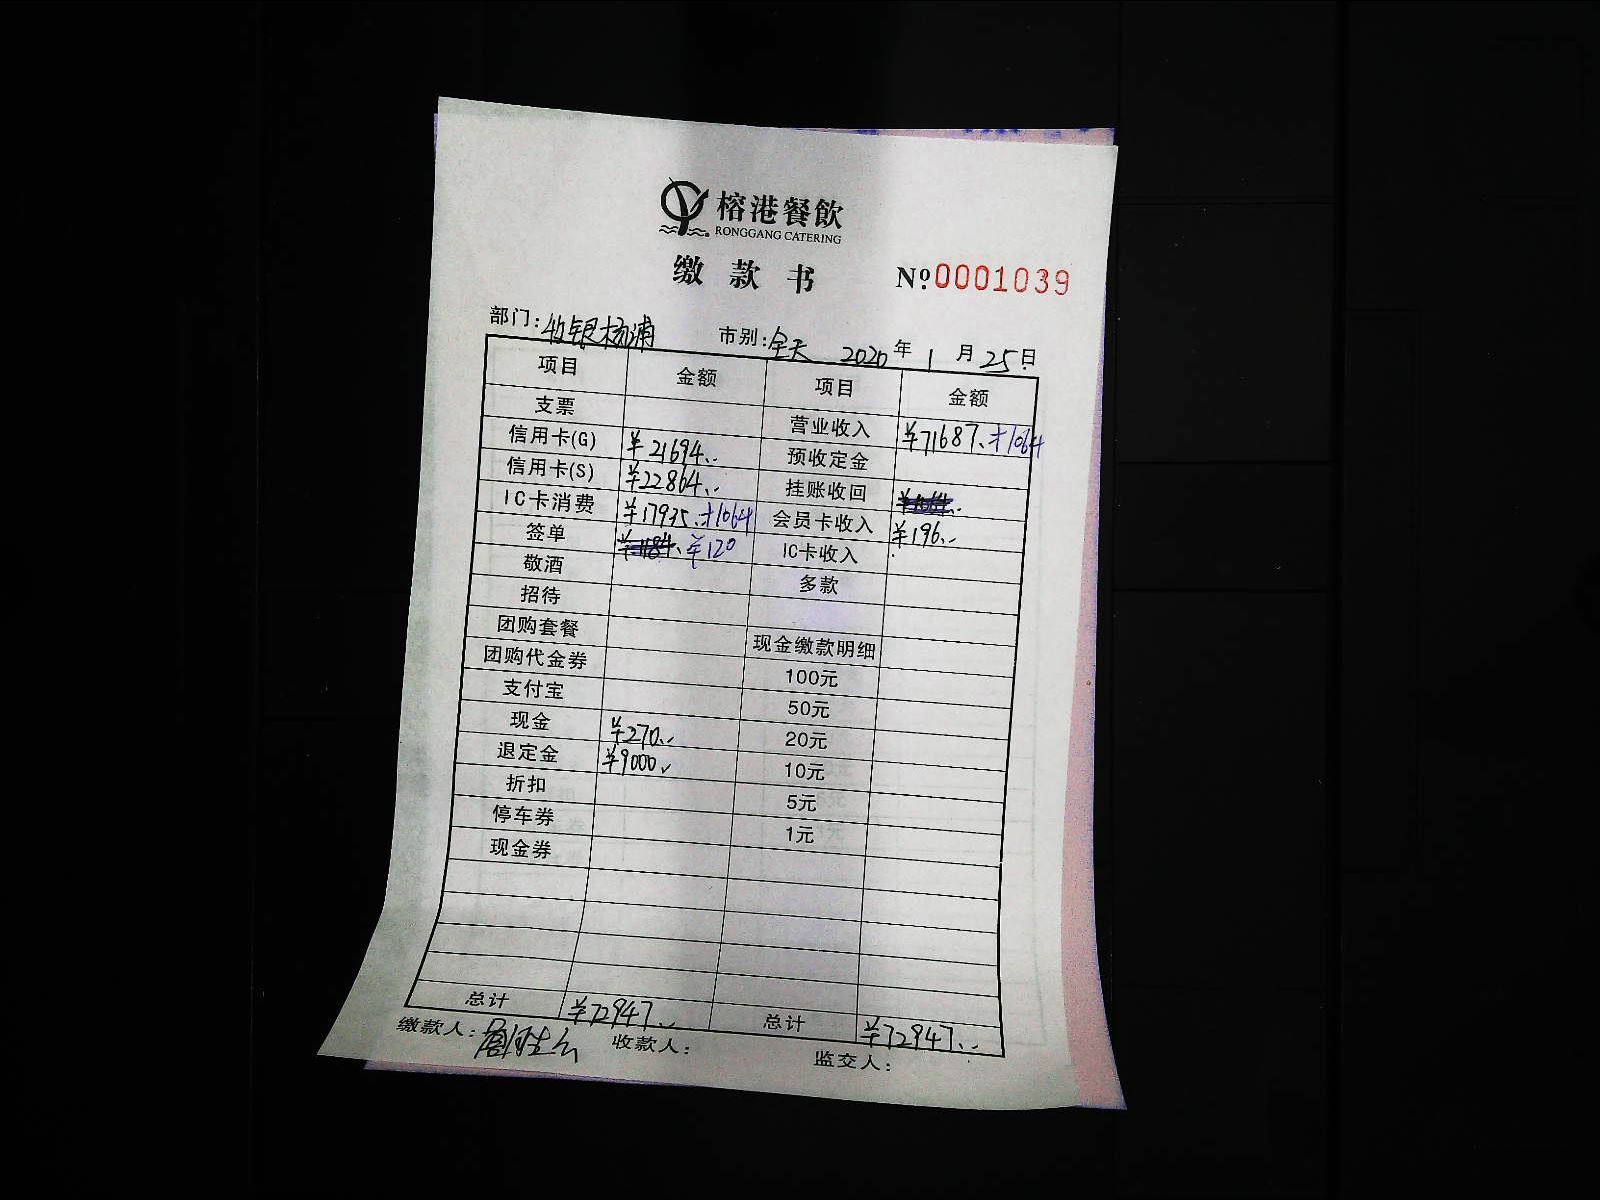 榕港餐飲
RONGGANG CATERING
缴款书 №.0001039
部门:收银杨浦 市别:全天 2020年1月25日
项目 金额 项目 金额
支票 营业收入 ¥71687.+1064
信用卡(G) ¥21694.. 预收定金
信用卡(S) ¥22864.. 挂账收回
IC卡消费 ¥17935.+1064 会员卡收入 ¥196..
签单 ¥120 IC卡收入
敬酒 多款
招待
团购套餐 现金缴款明细
团购代金券 100元
支付宝 50元
现金 ¥270.. 20元
退定金 ¥9000. 10元
折扣 5元
停车券 1元
现金券
总计 ¥72947.. 总计 ¥72947..
缴款人: 收款人: 监交人: